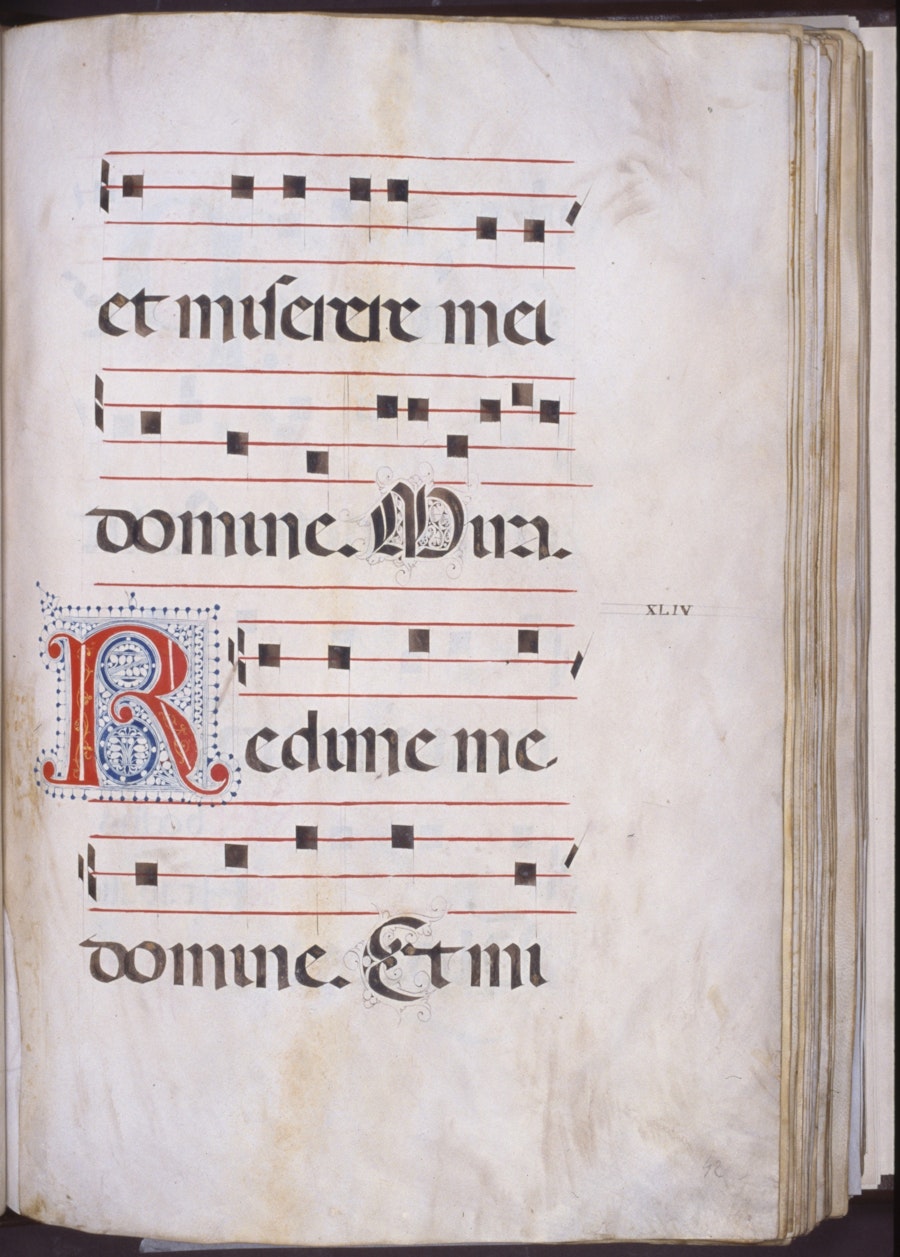 et miſerere mei
domine. Mira.
XLIV
Redime me
domine. Et mi